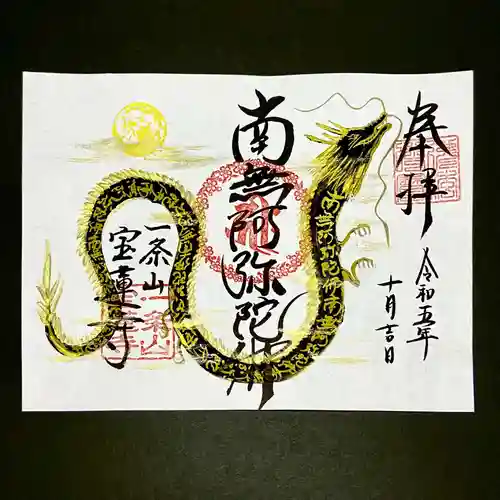 奉拝
令和五年
十月吉日
南無阿弥陀佛
一条山
宝蓮寺